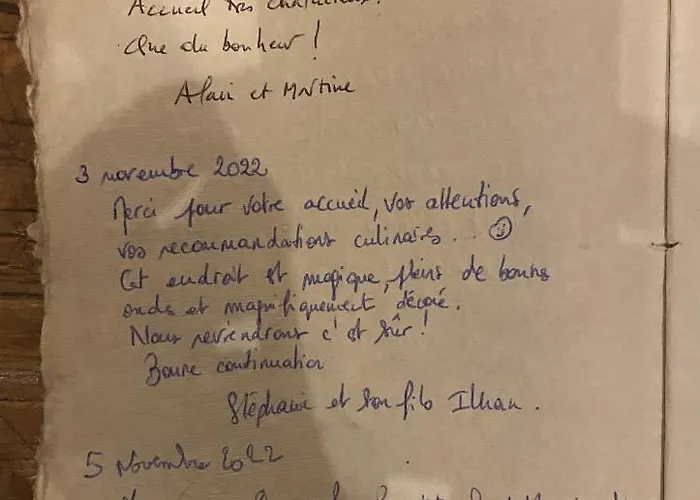 Accueil très chaleureux.
Que du bonheur !
Alain et Martine
3 novembre 2022
Merci pour votre accueil, vos attentions,
vos recommandations culinaires... ☺
Cet endroit est magique, pleins de bonnes
ondes et magnifiquement décoré.
Nous reviendrons c'est sûr !
Bonne continuation
Stéphanie et son fils Ilhan.
5 Novembre 2022